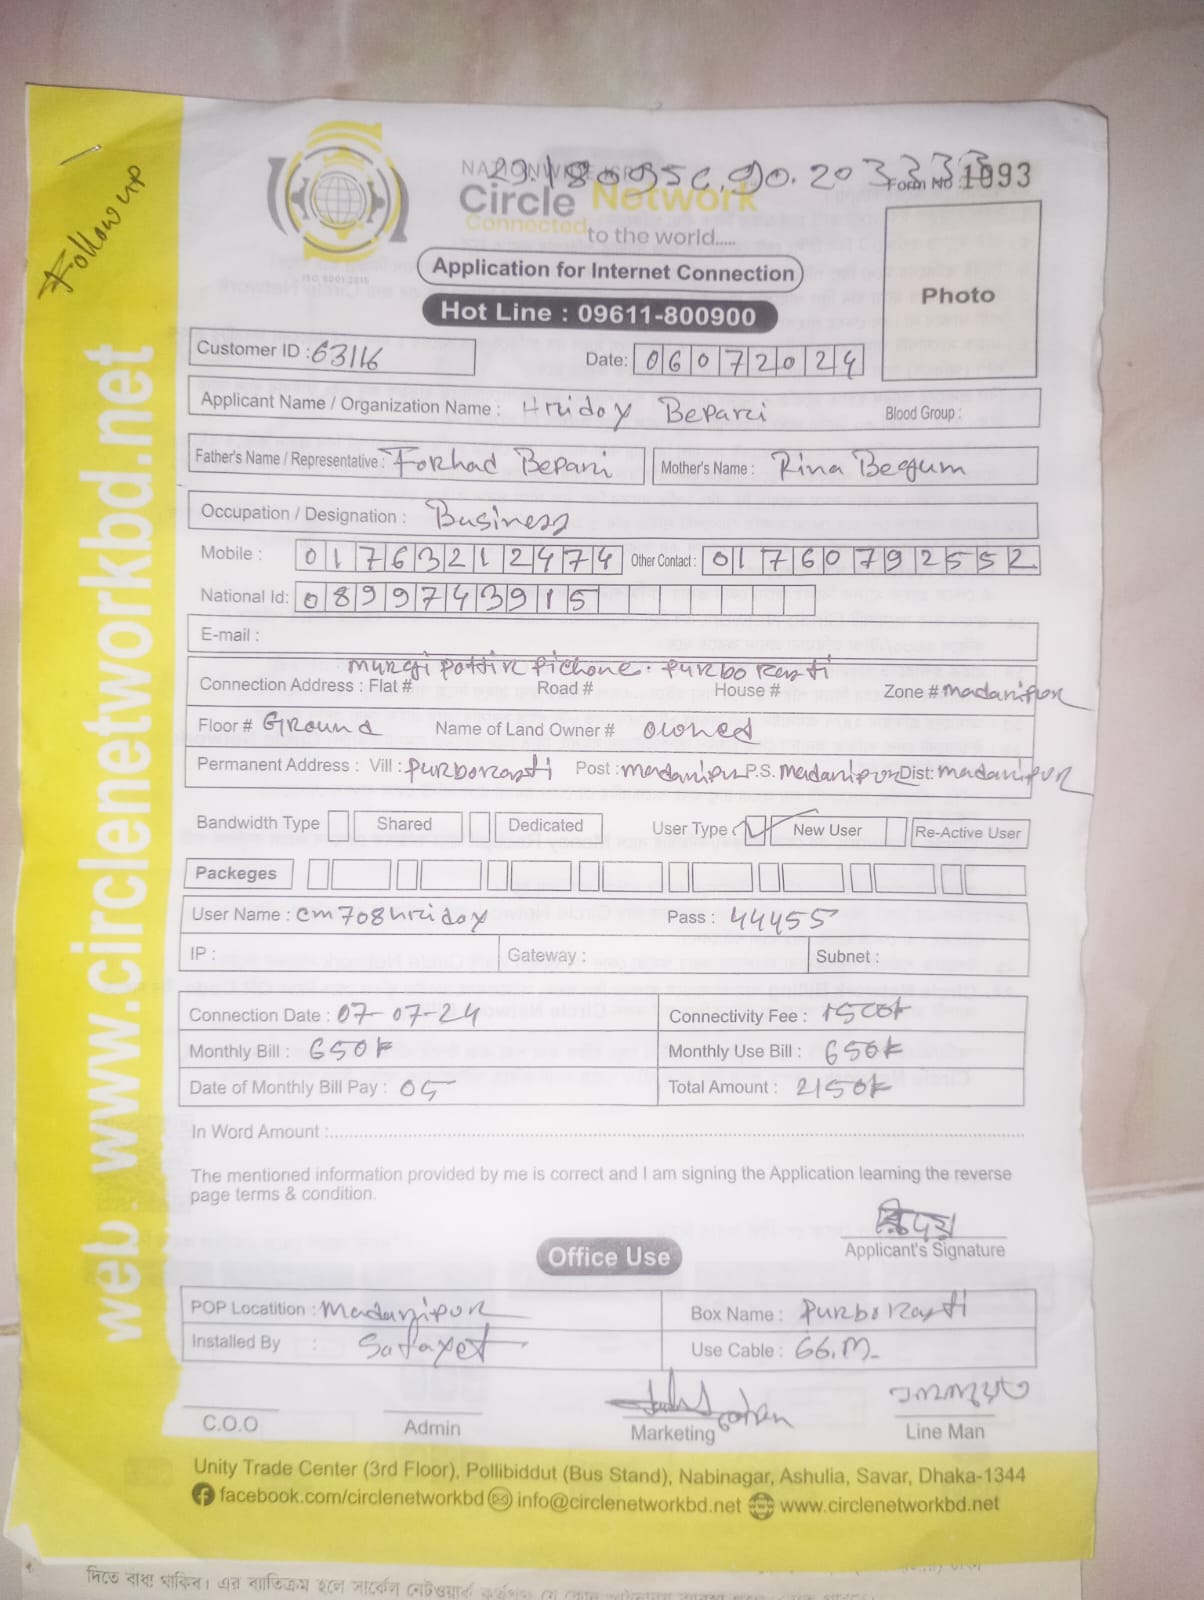 Follow up
NATIONWIDE ISP
Form No 1093
Circle Network
Connected to the world.....
ISO 9001:2015
Application for Internet Connection
Hot Line : 09611-800900
Photo
Customer ID : 63116
Date: 06072024
Applicant Name / Organization Name : Hridoy Bepari Blood Group :
Father's Name / Representative : Forhad Bepari Mother's Name : Rina Begum
Occupation / Designation : Business
Mobile : 01763212474 Other Contact : 01760792552
National Id: 0899743915
E-mail :
Murgi Pottir Pichone. Purbo Rasti
Connection Address : Flat # Road # House # Zone # madaripur
Floor # Ground Name of Land Owner # owned
Permanent Address : Vill : Purborasti Post : madaripur P.S. madaripur Dist: madaripur
Bandwidth Type Shared Dedicated User Type New User Re-Active User
Packeges
User Name : cm708hridoy Pass : 44455
IP : Gateway : Subnet :
Connection Date : 07-07-24 Connectivity Fee : 1500৳
Monthly Bill : 650৳ Monthly Use Bill : 650৳
Date of Monthly Bill Pay : 05 Total Amount : 2150৳
In Word Amount :
The mentioned information provided by me is correct and I am signing the Application learning the reverse
page terms & condition.
হৃদয়
Applicant's Signature
Office Use
POP Locatition : Madaripur Box Name : Purbo Rasti
Installed By : Safayet Use Cable : 66.M.
C.O.O Admin Marketing Line Man
Unity Trade Center (3rd Floor), Pollibiddut (Bus Stand), Nabinagar, Ashulia, Savar, Dhaka-1344
facebook.com/circlenetworkbd info@circlenetworkbd.net www.circlenetworkbd.net
web : www.circlenetworkbd.net
দিতে বাধ্য থাকিব। এর ব্যতিক্রম হলে সার্কেল নেটওয়ার্ক কর্তৃপক্ষ যে কোন